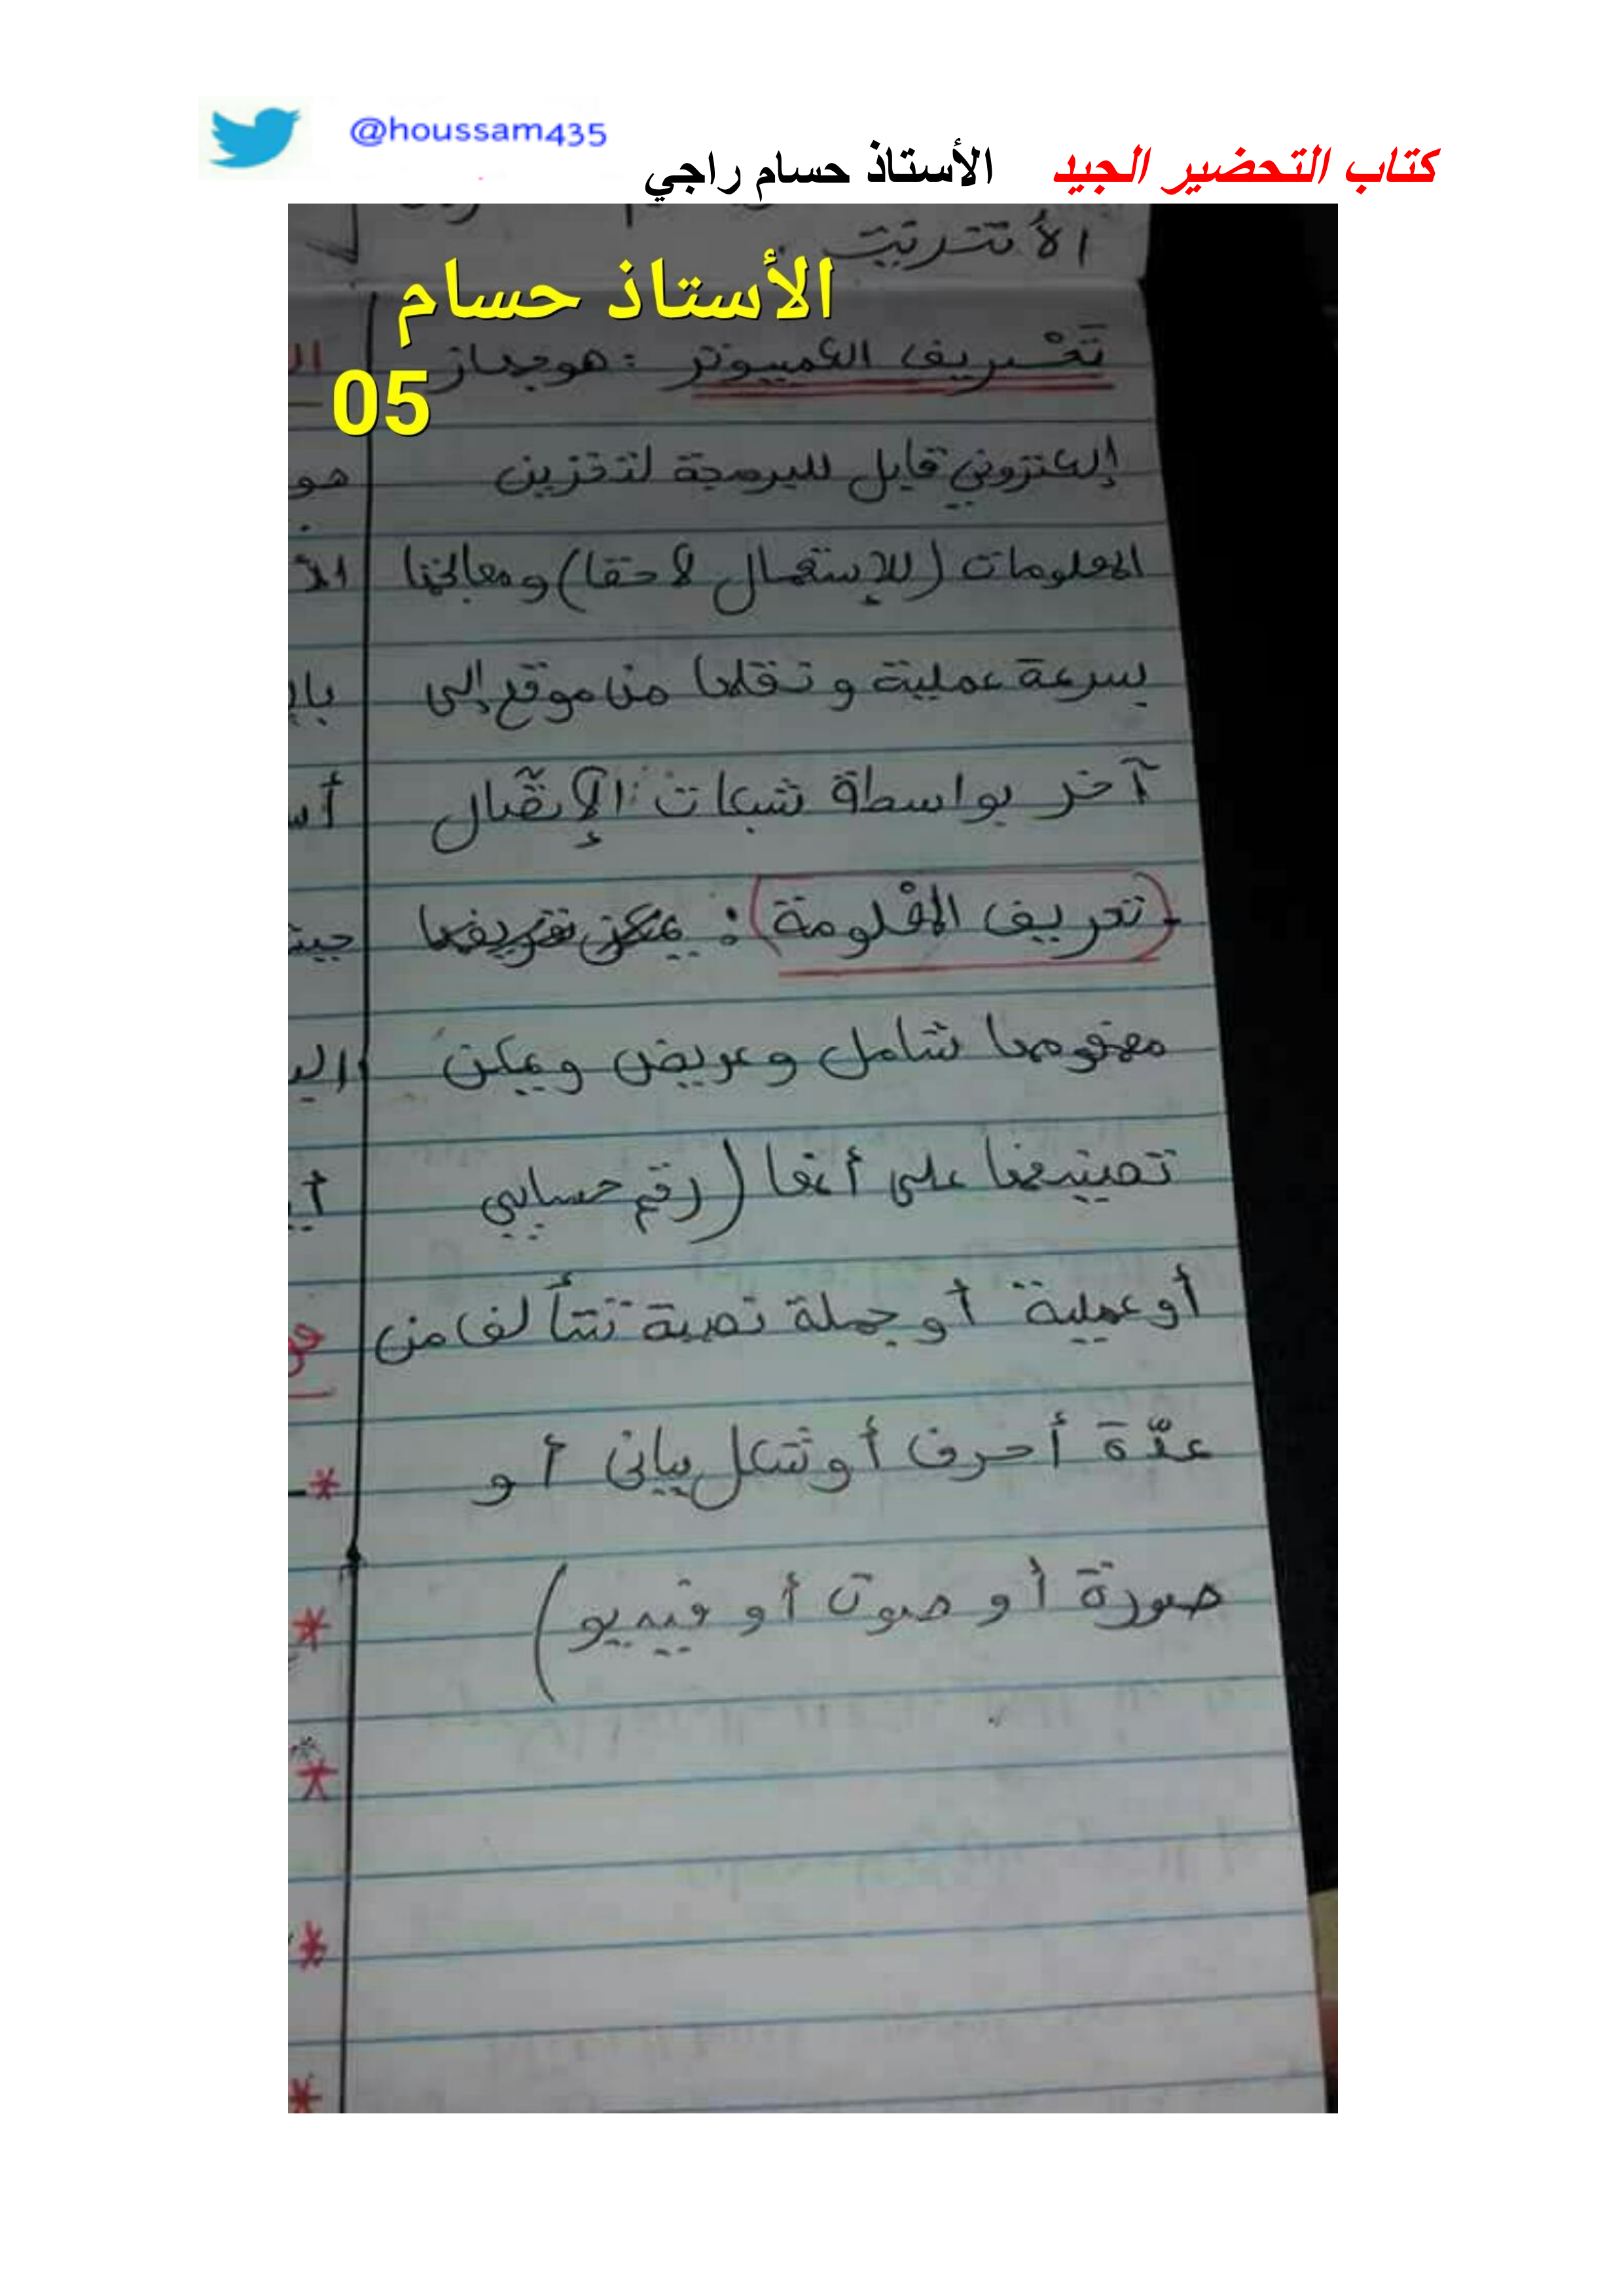 @houssam435
كتاب التحضير الجيد الأستاذ حسام راجي
الأنترنيت
الأستاذ حسام
05
تعريف الكمبيوتر : هو جهاز
إلكتروني قابل للبرمجة لتخزين
المعلومات (للإستعمال لاحقا) ومعالجتها
بسرعة عملية ونقلها من موقع إلى
آخر بواسطة شبكات الإتصال
(تعريف المعلومة) : يمكن تعريفها
مفهومها شامل وعريض ويمكن
تصنيفها على أنها (رقم حسابي
أو عملية أو جملة نصية تتألف من
عدّة أحرف أو شكل بياني أو
صورة أو صوت أو فيديو)
هو
*
*
*
*
*